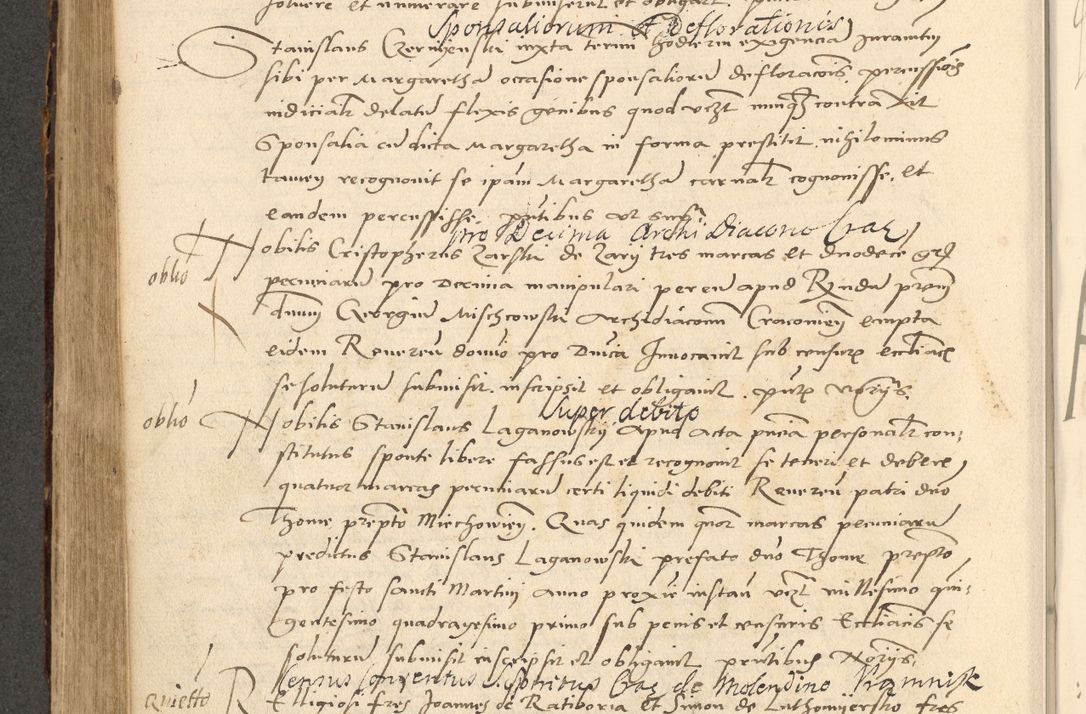 solvere et numerare submiserit et obligavit
Sponsaliorum et Deflorationis
Stanislaus Czernyenski iuxta termi hodierni exigencia iuramentu
sibi per Margaretha occasione sponsalioru defloracois percussiois
iudicialr delatu flexis genibus quod vczt nunqz contraxit
Sponsalia cu dicta Margaretha in forma prestitit nihilominus
tamen recognovit se ipam Margaretha carnalr cognovisse. Et
eandem percussisse. pntibus ut supra
pro Decima Archi Diacono Crac
oblio
Nobilis Cristopherus Zarski de Zary tres marcas et duodece gr
pecuniaru pro decima manipulari per eu apud Rndu prem
dnum Georgiu Mischcowski Archidiaconu Cracovien empta
eidem Reveren domino pro Dnica Invocavit sub censuris ecclia
se soluturu submisit inscripsit et obligavit pntibus Notriis
Super debito
oblio
Nobilis Stanislaus Laganowsky apud acta pncia personalr con-
stitutus sponte libere fassus est et recognovit se teneri et debere
quatuor marcas pecuniaru certi liquidi debiti Reveren patri dno
Thome prepto Miechowien. Quas quidem quor marcas pecuniaru
predictus Stanislaus Laganowski prefato dno Thome prepto
pro festo sancti Martini anno proxie instan vczt millesimo quin-
gentesimo quadragesimo primo sub penis et censuris Eccliacis se
soluturu submisit inscripsit et obligavit pntibus Notriis
Census Conventus S. Spiritus Crac de Molendino Kamnik
Quietto
Religiosi fres Joannes de Ratiboria et Simon de Luthomiersko fres